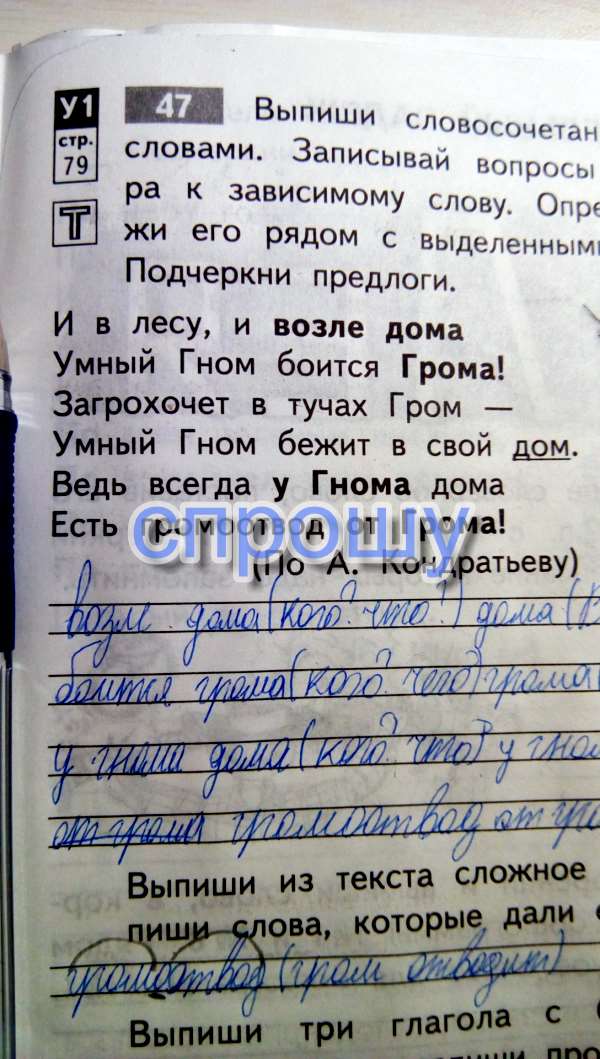 У1 47 Выпиши словосочетан
стр. 79 словами. Записывай вопросы
ра к зависимому слову. Опре
Т жи его рядом с выделенными
Подчеркни предлоги.
И в лесу, и возле дома
Умный Гном боится Грома!
Загрохочет в тучах Гром —
Умный Гном бежит в свой дом.
Ведь всегда у Гнома дома
Есть громоотвод от Грома!
спрошу
(По А. Кондратьеву)
возле дома (кого? что?) дома (В
боится грома (кого? чего?) грома (
у гнома дома (кого? что?) у гном
от грома громоотвод от гро
Выпиши из текста сложное
пиши слова, которые дали
громоотвод (гром отводит)
Выпиши три глагола с